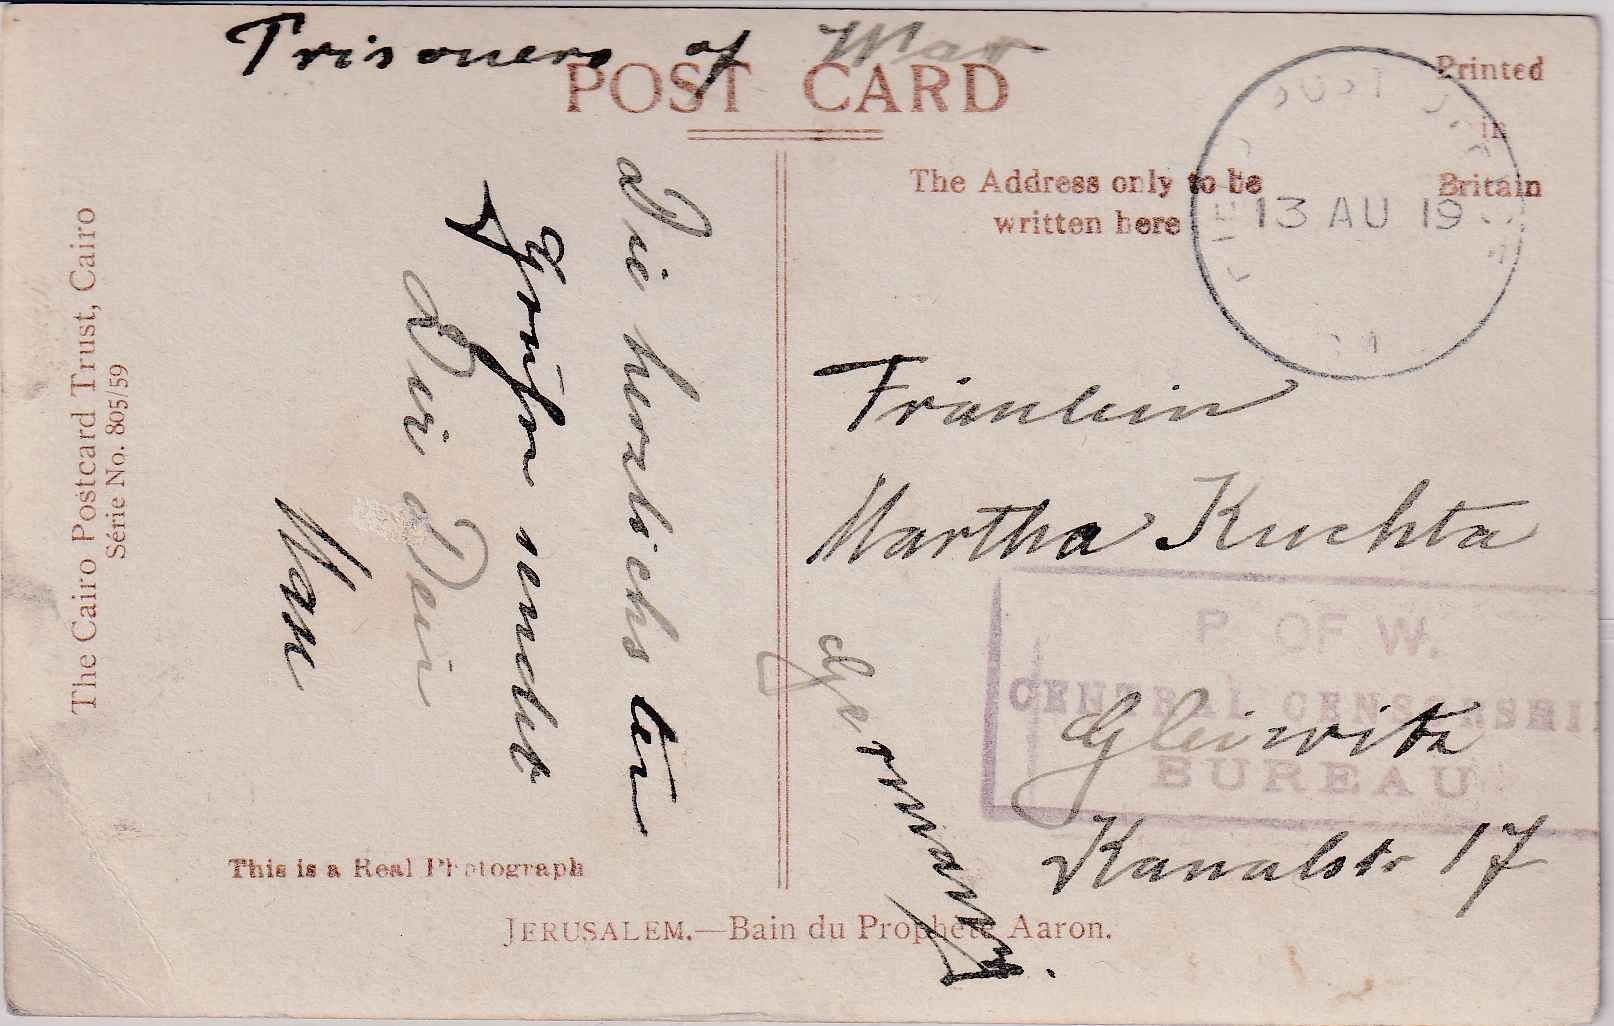 Prisoners of War
POST CARD
Printed
in
Britain
The Address only to be
written here
FIELD POST OFFICE
13 AU 19
Die herzlichsten
Grüße sendet
Dir Dein
Fräulein
Martha Kuchta
P. OF W.
CENTRAL CENSORSHI
BUREAU
Gleiwitz
Kanalstr 17
Germany
The Cairo Postcard Trust, Cairo
Série No. 805/59
This is a Real Photograph
JERUSALEM.—Bain du Prophète Aaron.